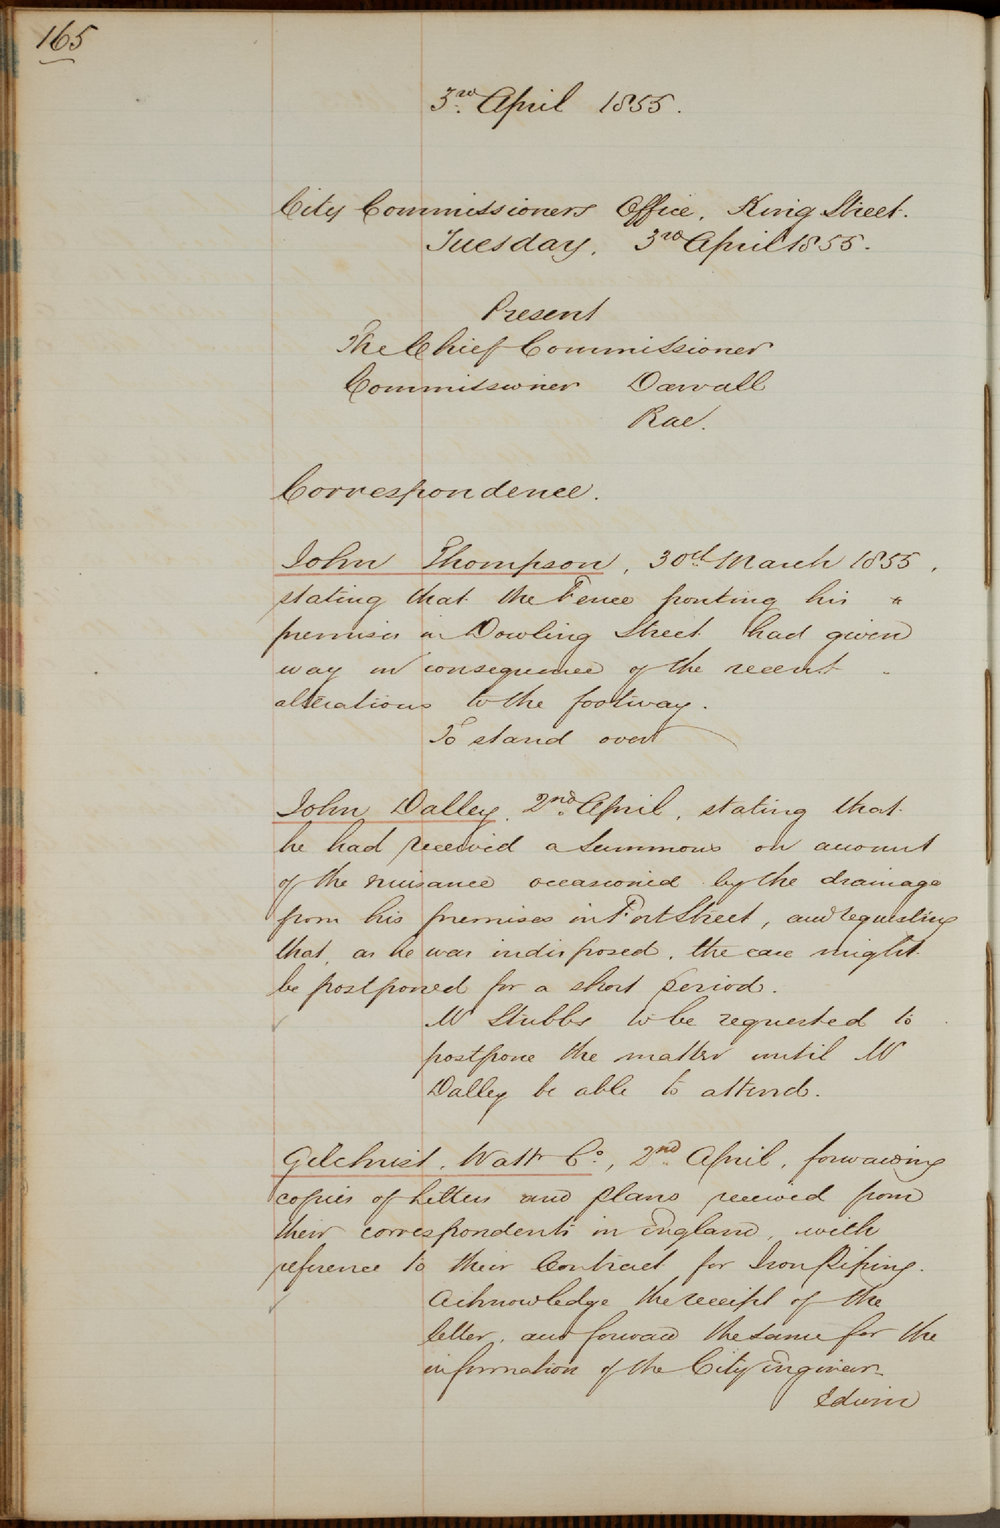 165
3rd. April 1855.
City Commissioners Office, King Street.
Tuesday, 3rd April 1855.
Present
The Chief Commissioner
Commissioner Darvall
Rae.
Correspondence.
John Thompson, 30th March 1855,
stating that the Fence fronting his "
premises in Dowling Street had given
way in consequence of the recent
alterations to the footway.
To stand over
John Dalley, 2nd. April, stating that
he had received a Summons on account
of the nuisance occasioned by the drainage
from his premises in Fort Street, and requesting
that, as he was indisposed, the case might
be postponed for a short period.
Mr Stubbs to be requested to
postpone the matter until Mr
Dalley be able to attend.
Gilchrist, Watt Co., 2nd. April, forwarding
copies of Letters and plans received from
their correspondents in England, with
reference to their Contract for Iron Piping.
Acknowledge the receipt of the
letter, and forward the same for the
information of the City Engineer
Edwin